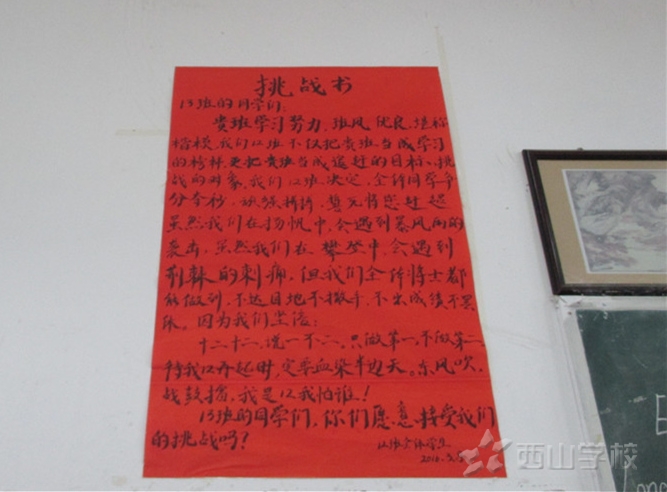 挑战书
13班的同学们:
贵班学习努力、班风优良,堪称
楷模,我们12班不仅把贵班当成学习
的榜样,更把贵班当成追赶的目标、挑
战的对象。我们12班决定,全体同学争
分夺秒,顽强拼搏,
虽然我们在扬帆中,会遇到暴风雨的
袭击,虽然我们在攀登中,会遇到
荆棘的刺痛,但我们全体将士都
能做到,不达目地不撒手,不出成绩不罢
休。因为我们坚信:
十二十二,说一不二,只做第一,不做第二
待我12开起时,定要血染半边天。东风吹,
战鼓擂,我是12我怕谁!
13班的同学们,你们愿意接受我们
的挑战吗?
12班全体学生
西山学校